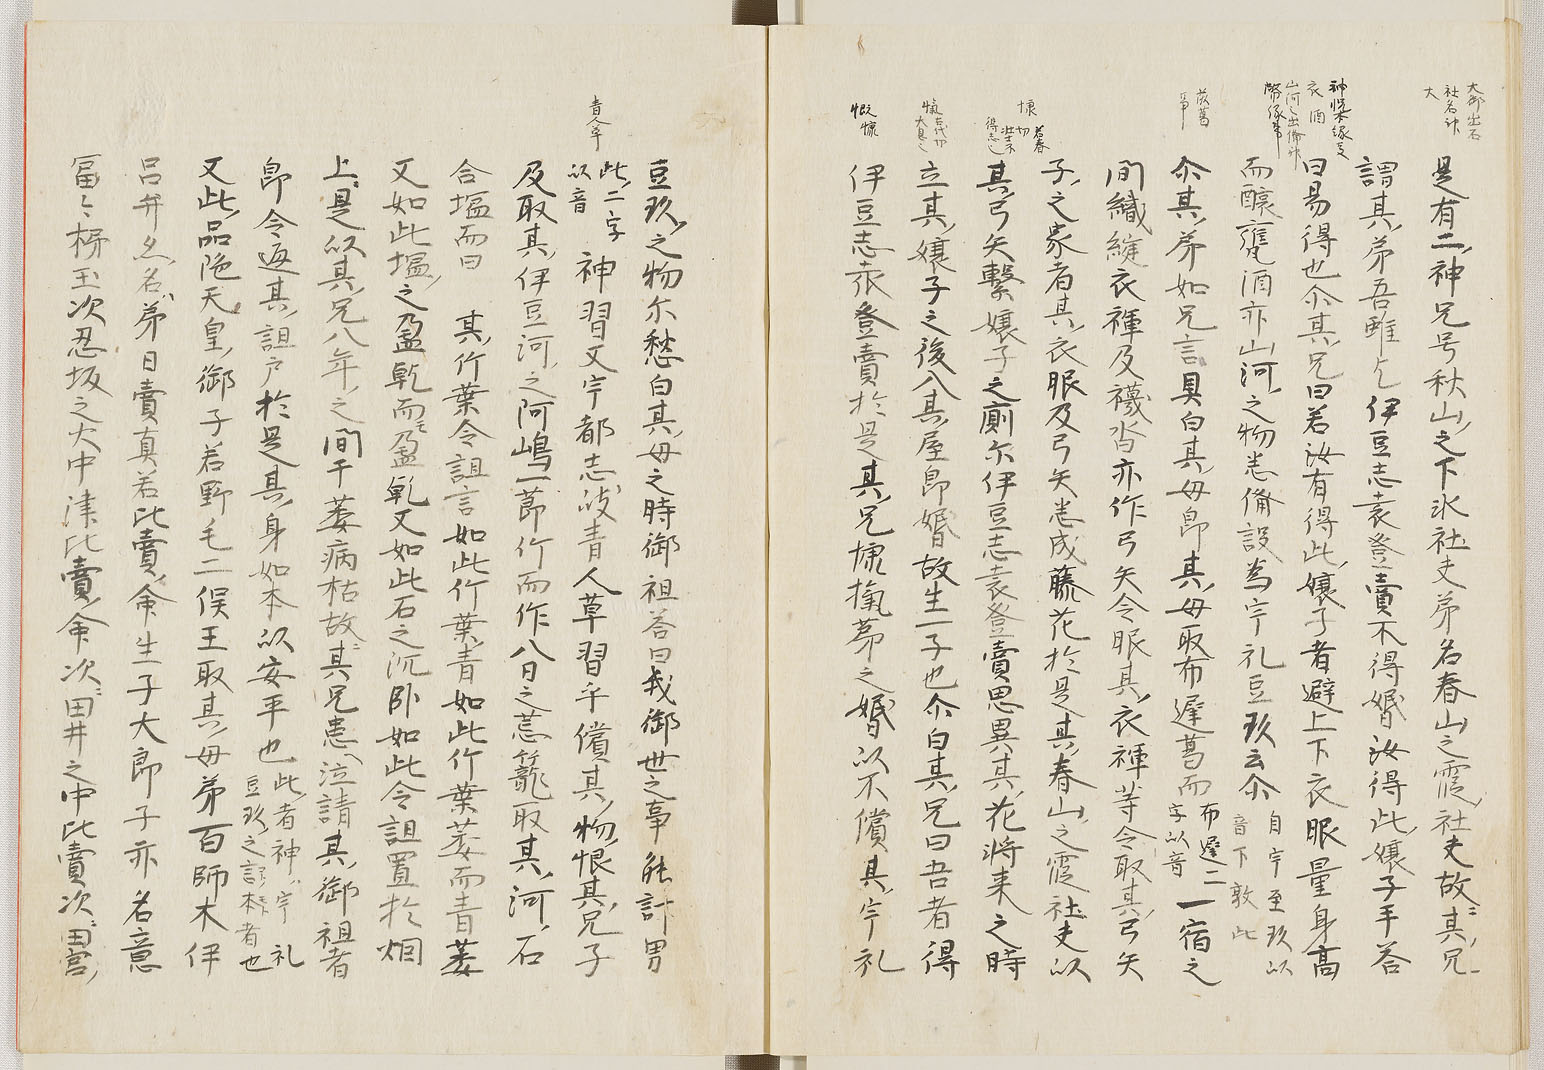 是有二神兄号秋山之下氷社夫弟名春山之霞社夫故其兄
謂其弟吾雖乞伊豆志袁登賣不得婚汝得此嬢子乎答
曰易得也尒其兄曰若汝有得此嬢子者避上下衣服量身高
而釀甕酒亦山河之物悉俻設為宇礼豆玖云尒自宇至玖以
音下敦此
尒其弟如兄言具白其母即其母取布遲葛而布遲二
字以音一宿之
間織縫衣褌及襪沓亦作弓矢令服其衣褌等令取其弓矢
子之家者其衣服及弓矢悉成藤花於是其春山之霞社夫以
其弓矢繋嬢子之廁尓伊豆志袁登賣思異其花将来之時
立其嬢子之後入其屋即婚故生一子也尒白其兄曰吾者得
伊豆志袁登賣於是其兄慷愾弟之婚以不償其宇礼
豆玖之物尓愁白其母之時御祖答曰我御世之事能許男
此二字
以音神習又宇都志波青人草習乎償其物恨其兄子
及取其伊豆河之河嶋一莭竹而作八目之荒籠取其河石
合塩而曰 其竹葉令詛言如此竹葉青如此竹葉萎而青萎
又如此塩之盈乾而盈乾又如此石之沉卧如此令詛置於烟
上是以其兄八年之間干萎病枯故其兄患泣請其御祖者
即令返其詛戸於是其身如本以安平也此者神宇礼
豆玖之言本者也
又此品陁天皇御子若野毛二俣王取其母弟百師木伊
呂弁亦名弟日賣真若比賣命生子大郎子亦名意
冨々杼王次忍坂之大中津比賣命次田井之中比賣次田宮
青人草
慨慷